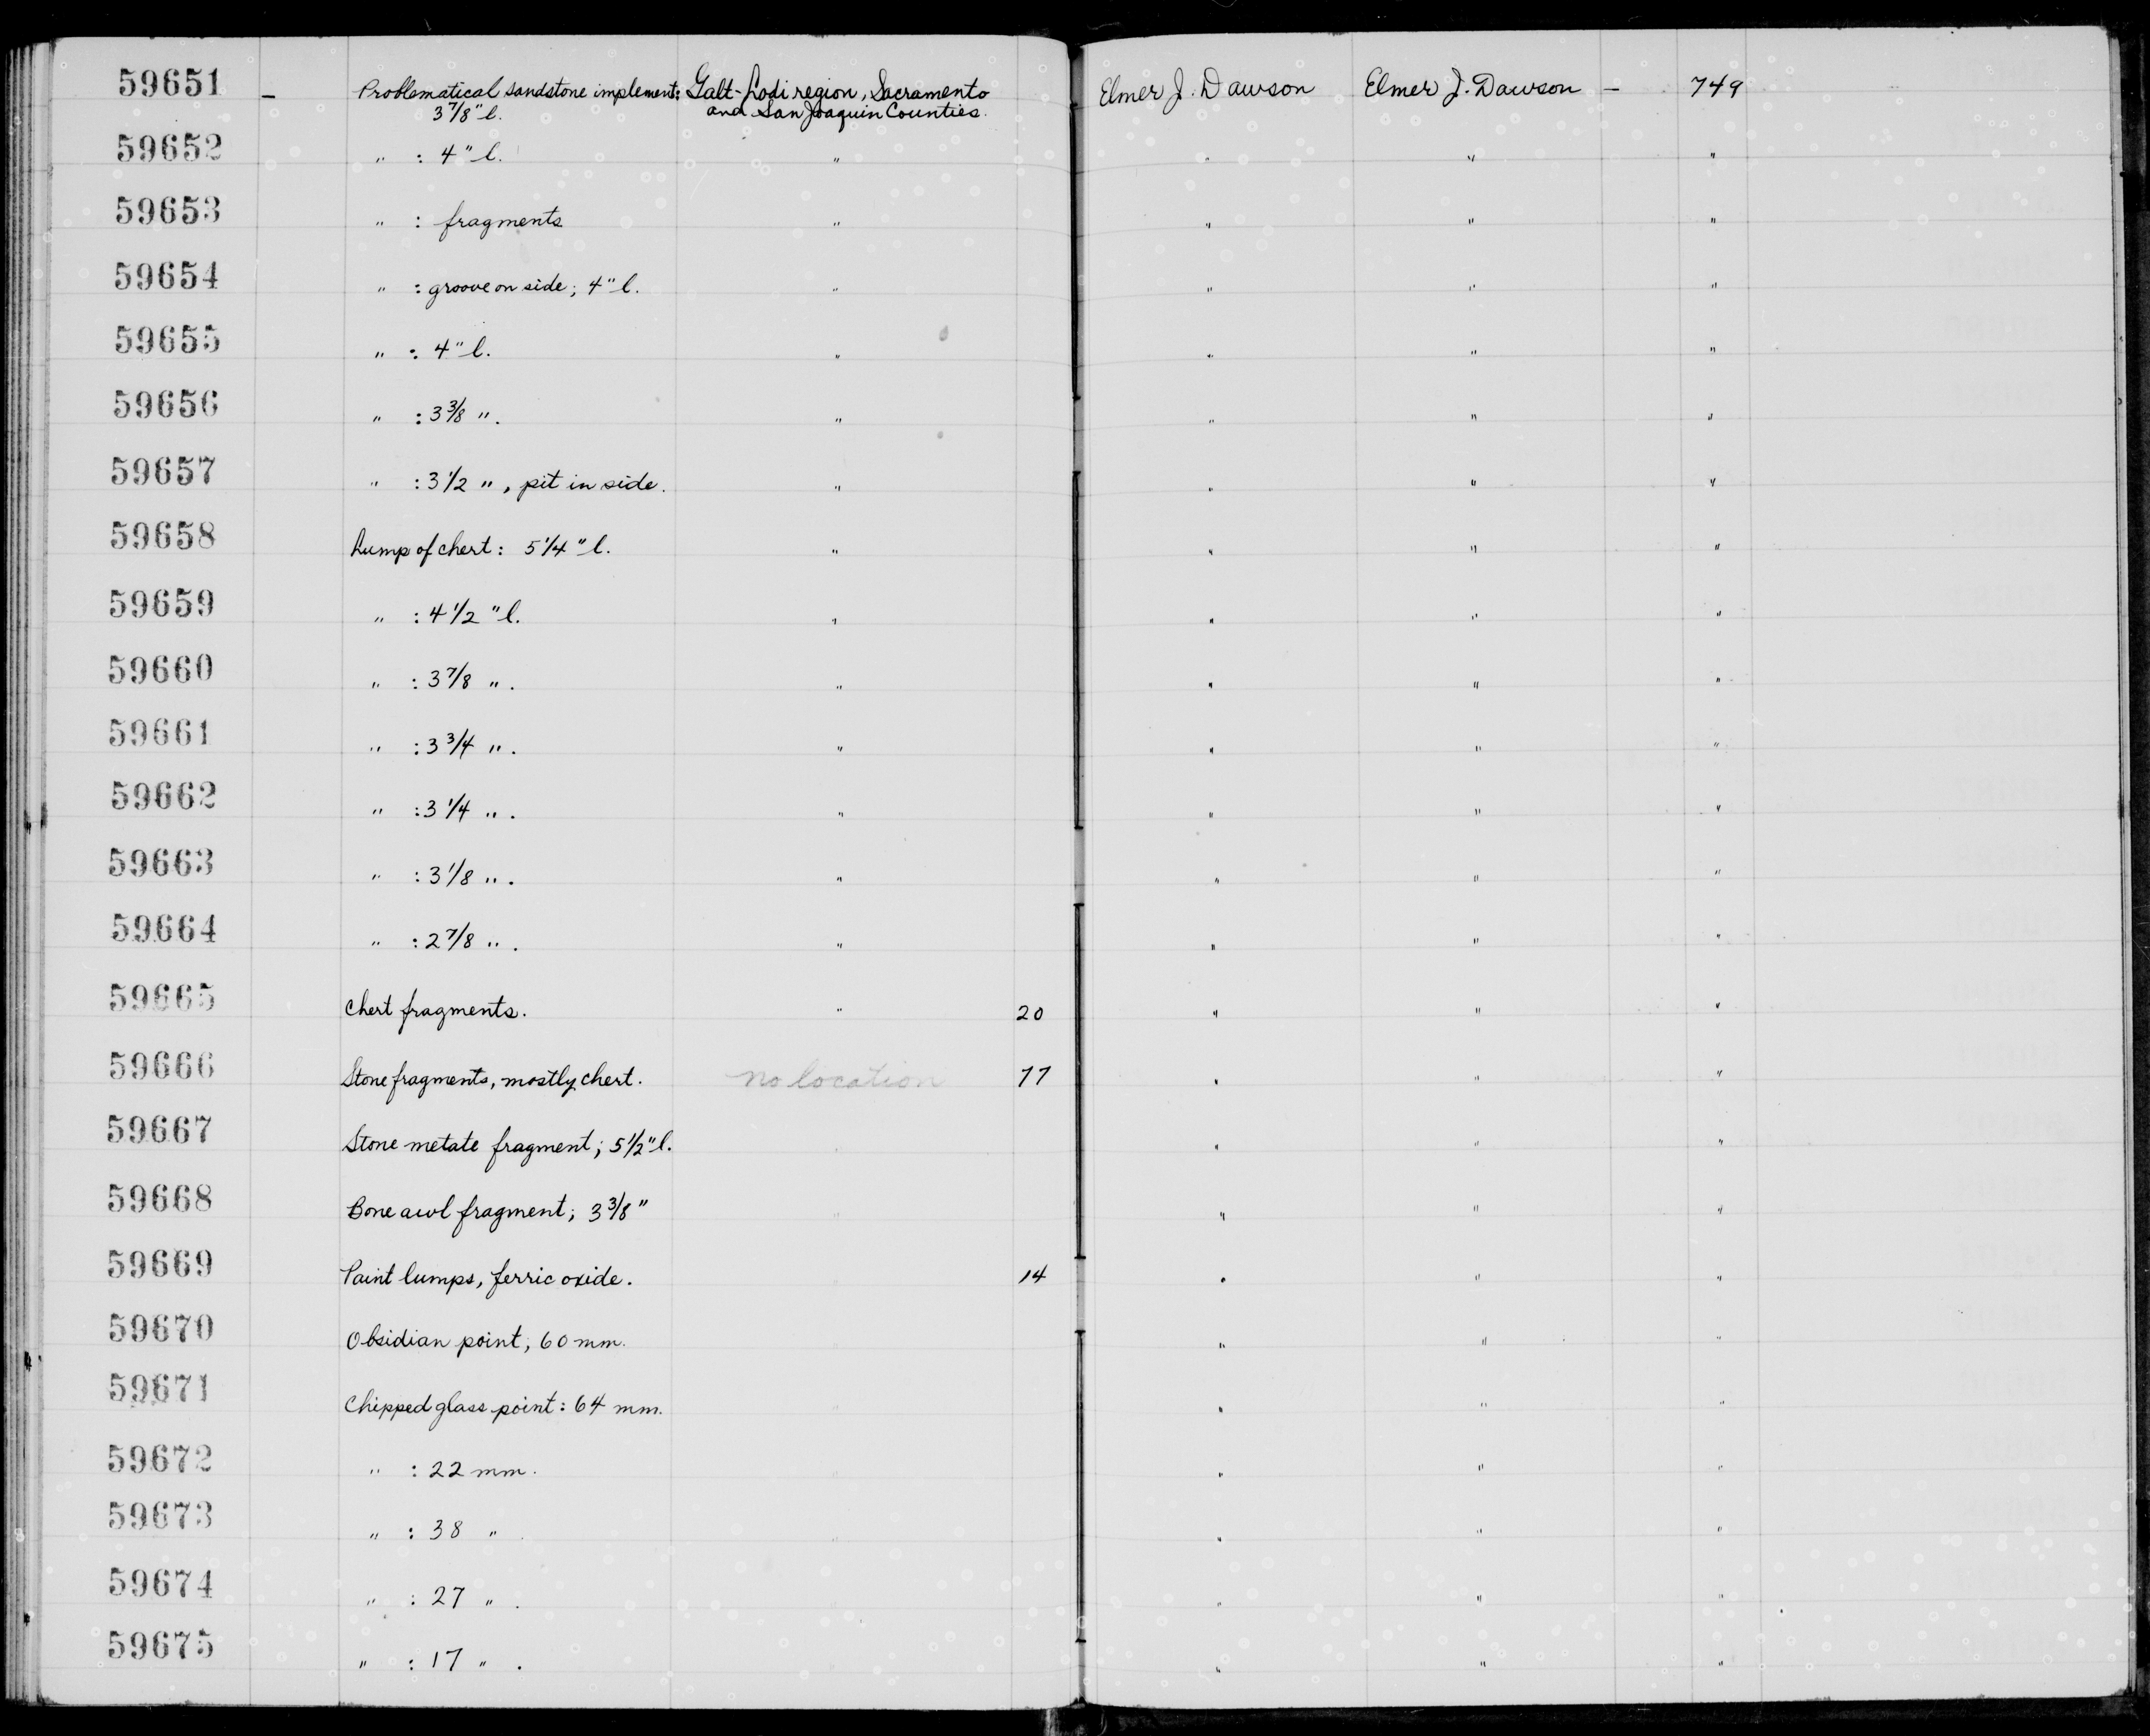 59651 – Problematical sandstone implement: Galt-Lodi region, Sacramento Elmer J. Dawson Elmer J. Dawson – 749
3 7/8" l. and San Joaquin Counties.
59652 " : 4" l. " " " "
59653 " : fragments " " " "
59654 " : groove on side; 4" l. " " " "
59655 " : 4" l. " " " "
59656 " : 3 3/8 ". " " " "
59657 " : 3 1/2 ", pit in side. " " " "
59658 Lump of chert: 5 1/4" l. " " " "
59659 " : 4 1/2 " l. " " " "
59660 " : 3 7/8 ". " " " "
59661 " : 3 3/4 ". " " " "
59662 " : 3 1/4 ". " " " "
59663 " : 3 1/8 ". " " " "
59664 " : 2 7/8 ". " " " "
59665 Chert fragments. " 20 " " "
59666 Stone fragments, mostly chert. no location 77 " " "
59667 Stone metate fragment; 5 1/2" l. " " " "
59668 Bone awl fragment; 3 3/8" " " " "
59669 Paint lumps, ferric oxide. " 14 " " "
59670 Obsidian point; 60 mm. " " " "
59671 Chipped glass point: 64 mm. " " " "
59672 " : 22 mm. " " " "
59673 " : 38 " . " " " "
59674 " : 27 " . " " " "
59675 " : 17 " . " " "